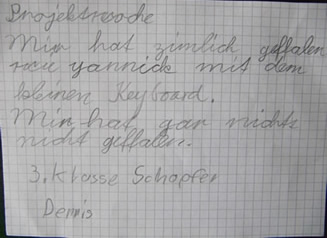 Projektwoche
Mir hat zimlich geffalen
yannick mit dem
kleinen Keyboard.
Mir hat gar nichts
nicht geffallen.
3. Klasse Schapfer
Dennis